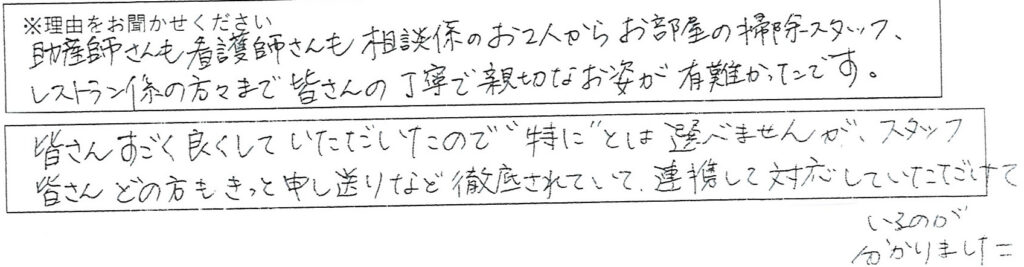 ※理由をお聞かせください
助産師さんも看護師さんも相談係のお2人からお部屋の掃除スタッフ、
レストラン係の方々まで皆さんの丁寧で親切なお姿が有難かったです。
皆さんすごく良くしていただいたので"特に"とは選べませんが、スタッフ
皆さんどの方もきっと申し送りなど徹底されていて、連携して対応していただけて
いるのが
分かりました